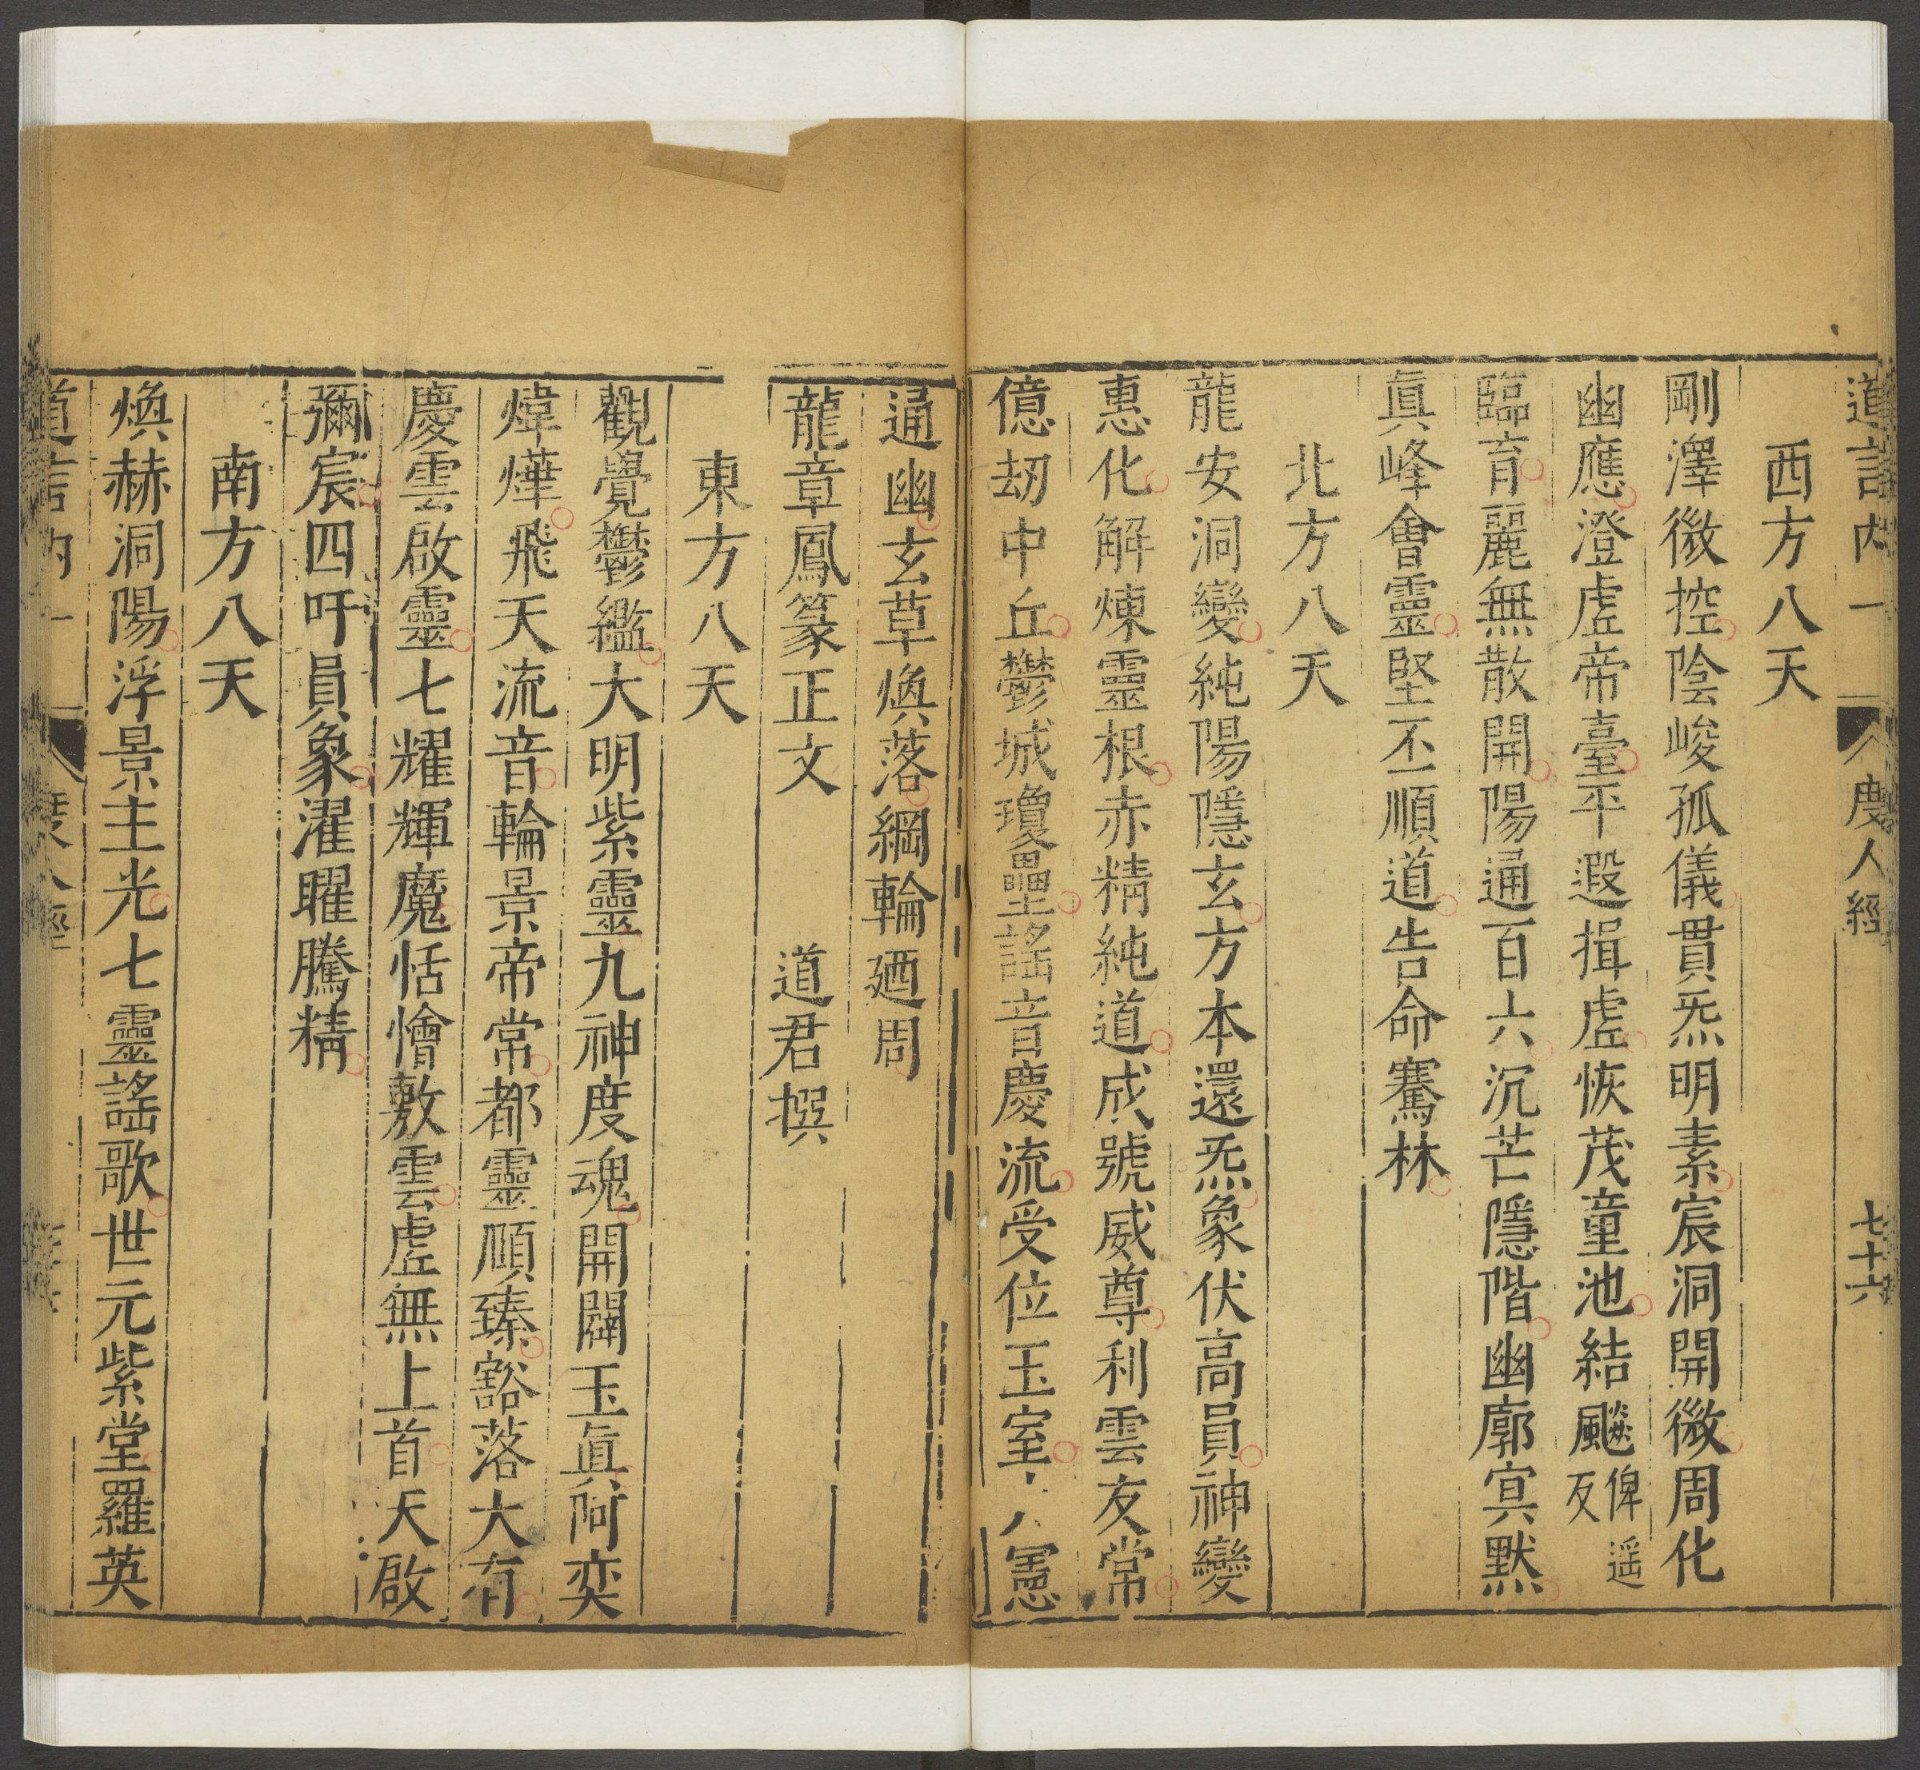 道言內一 度人經 七十六
西方八天
剛澤微控陰峻孤儀貫炁明素宸洞開微周化
幽應澄虛帝臺平遐揖虛恢茂童池結飈俾遥反
臨育麗無散開陽通百六沉芒隱階幽廓冥默
真峰會靈堅丕順道告命騫林
北方八天
龍安洞變純陽隱玄方本還炁象伏高員神變
惠化解煉靈根赤精純道成號威尊利雲友常
億劫中丘鬱城瓊壘謠音慶流受位玉室憲
通幽玄草煥落綱輪廻周
龍章鳳篆正文 道君撰
東方八天
觀覺鬱鑑大明紫靈九神度魂開闢玉眞阿奕
煒燁飛天流音輪景帝常都靈順臻豁落大有
慶雲啟靈七耀輝魔恬懀敷雲虛無上首天啟
彌宸四吁員象濯曜騰精
南方八天
煥赫洞陽浮景主光七靈謠歌世元紫堂羅英
道言內一 度人經